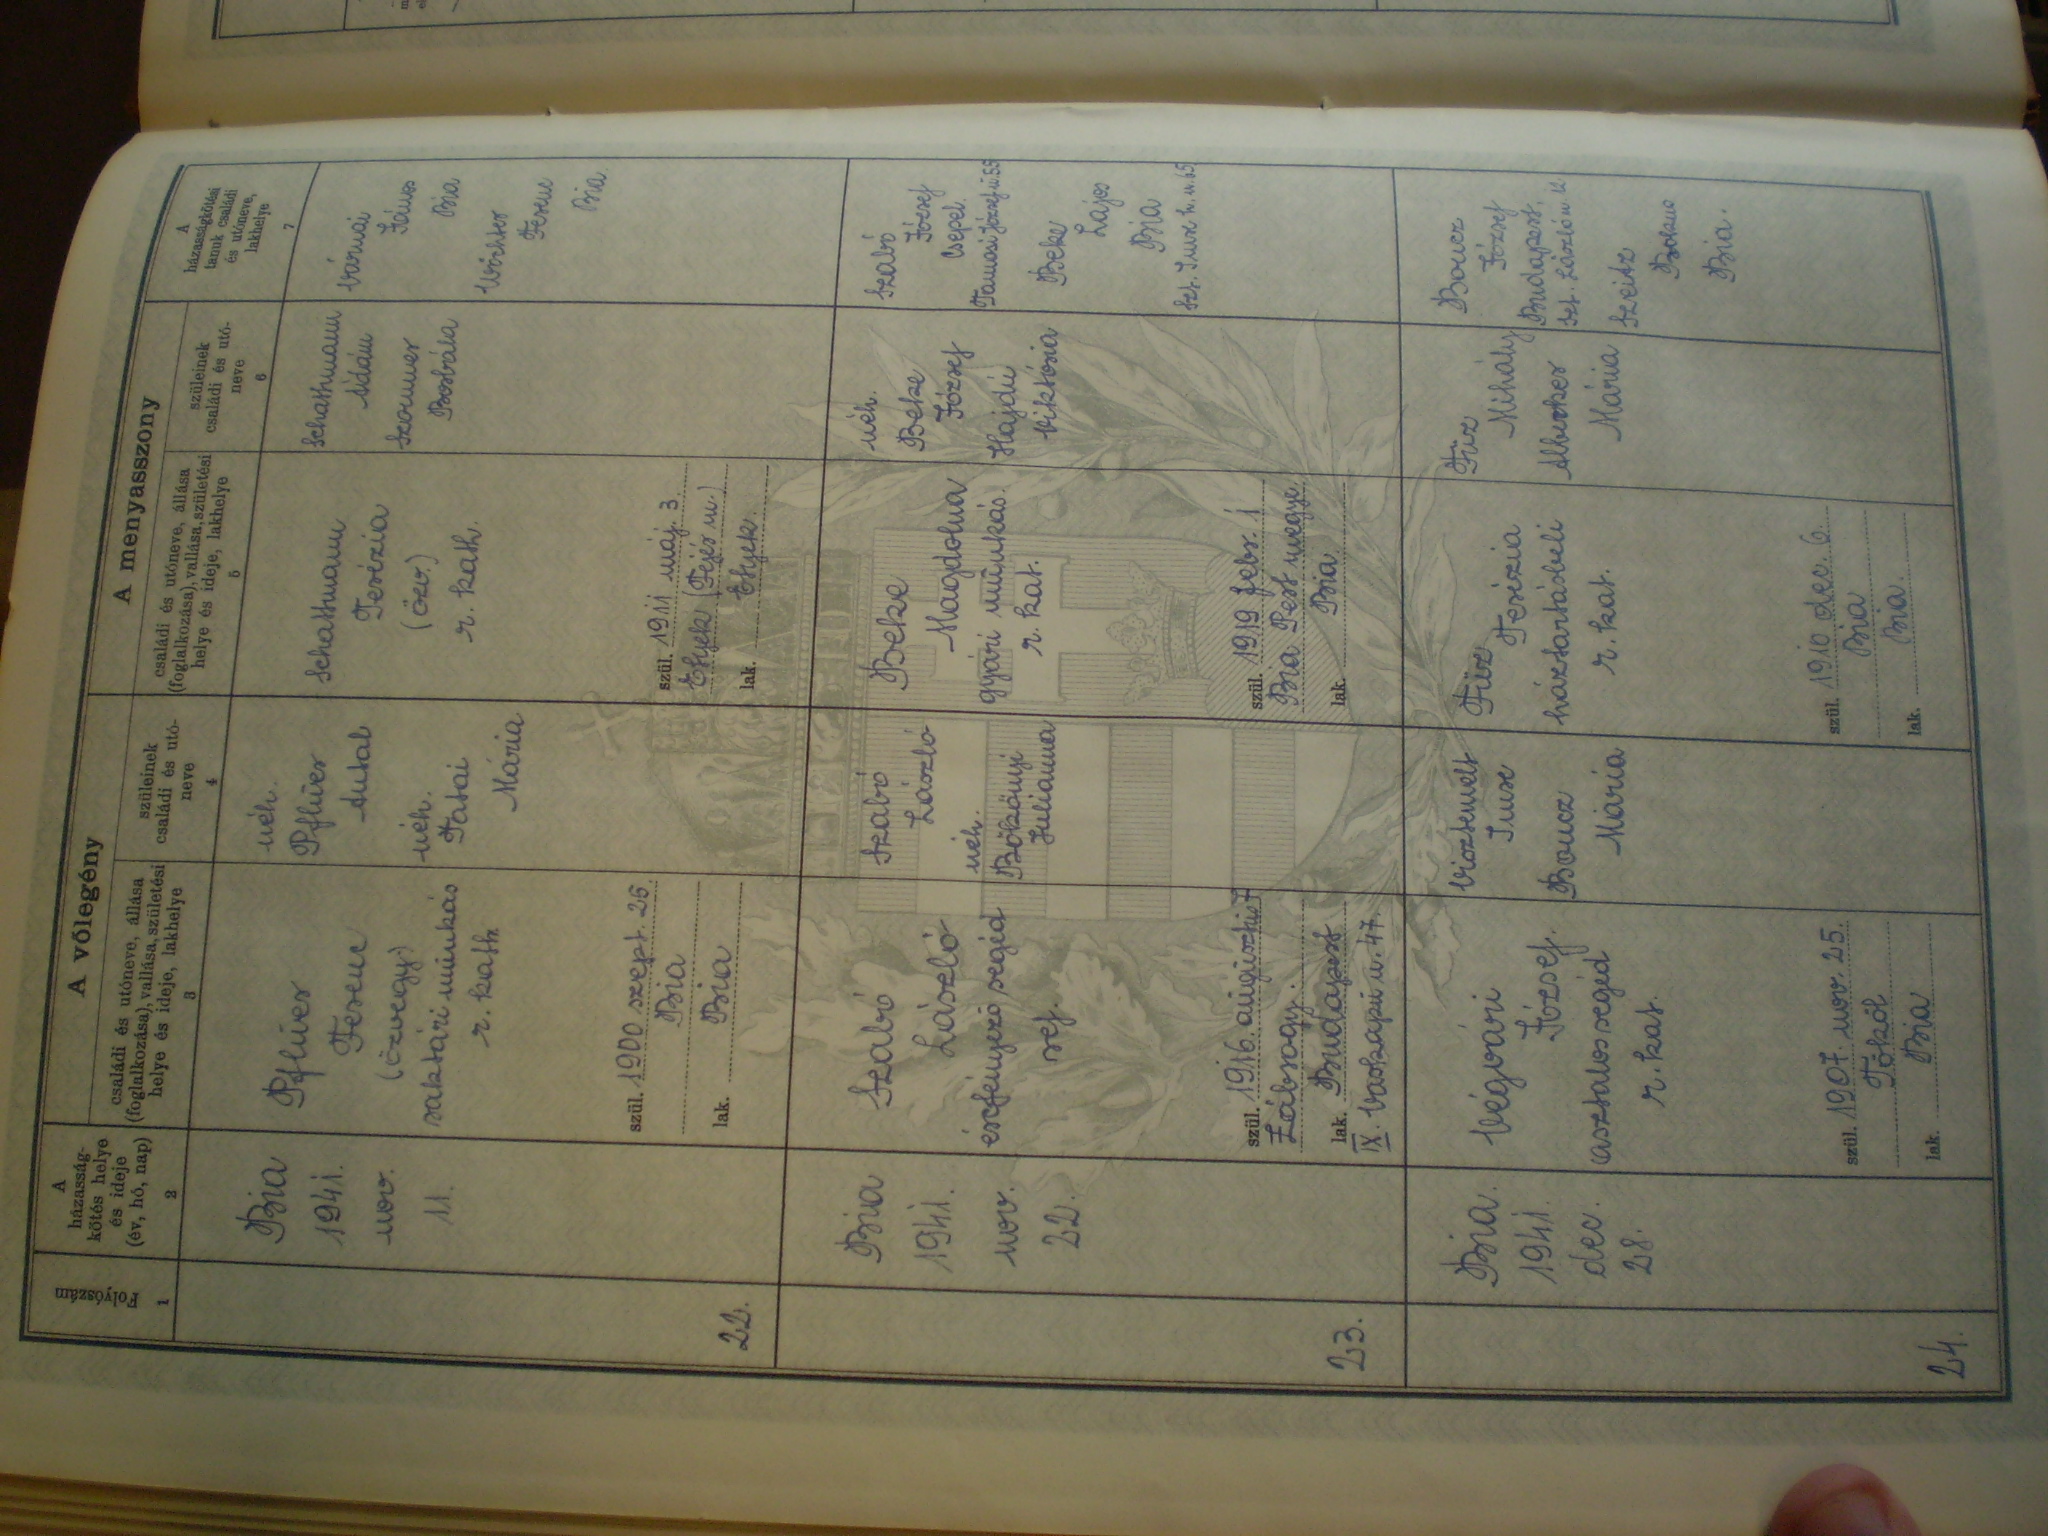 A vőlegény
A menyasszony
Folyószám
1
A
házasság-
kötés helye
és ideje
(év, hó, nap)
2
családi és utóneve, állása
(foglalkozása), vallása, születési
helye és ideje, lakhelye
3
szüleinek
családi és utó-
neve
4
családi és utóneve, állása
(foglalkozása), vallása, születési
helye és ideje, lakhelye
5
szüleinek
családi és utó-
neve
6
A
házasságkötési
tanuk családi
és utóneve,
lakhelye
7
22.
Bia
1941.
nov.
11.
Pflüer
Ferenc
(özvegy)
raktári munkás
r. kath.
szül. 1900 szept. 26
Bia
lak. Bia
néh.
Pflüer
Antal
néh.
Tatai
Mária
Schathmann
Terézia
(özv.)
r. kath.
szül. 1911 máj. 3
Etyek (Fejér m.)
lak. Etyek.
Schathmann
Ádám
Szommer
Borbála
Várnai
János
Bia
Wächter
Ferenc
Bia.
23.
Bia
1941.
nov.
22.
Szabó
László
ércfényező segéd
ref.
szül. 1916. augusztus 7
Lábsogy.
lak. Budapest
IX. Vaskapu u. 47.
Szabó
László
néh.
Bökönyi
Julianna
Beke
Magdolna
gyári munkás.
r. kat.
szül. 1919 febr. 1
Bia Pest megye.
lak. Bia.
néh.
Beke
József
Hajdú
Viktória
Szabó
József
Csepel.
Tamási József u. 55
Beke
Lajos
Bia
Szt. Imre h. u. 65
24.
Bia.
1941
dec.
28.
Végvári
József.
asztalossegéd
r. kat.
szül. 1907. nov. 25.
Tököl
lak. Bia
Imre
Boncz
Mária
Füz
Terézia
háztartásbeli
r. kat.
szül. 1910 dec. 6.
Bia
lak. Bia.
Füz
Mihály
Albecker
Mária
Boncz
József
Budapest,
Szt. László u. 12
Szeitz
Bia.